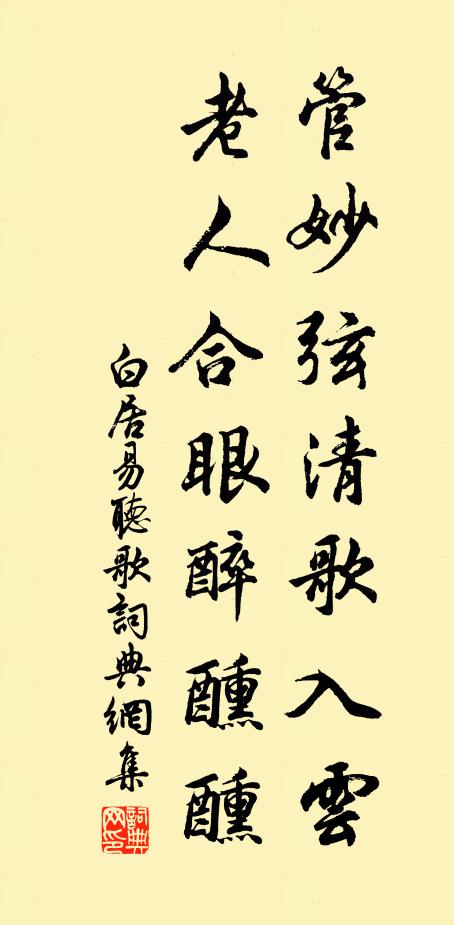 管妙弦清歌入雲
老人合眼醉醺醺
白居易聽歌詞典網集
詞典
网印